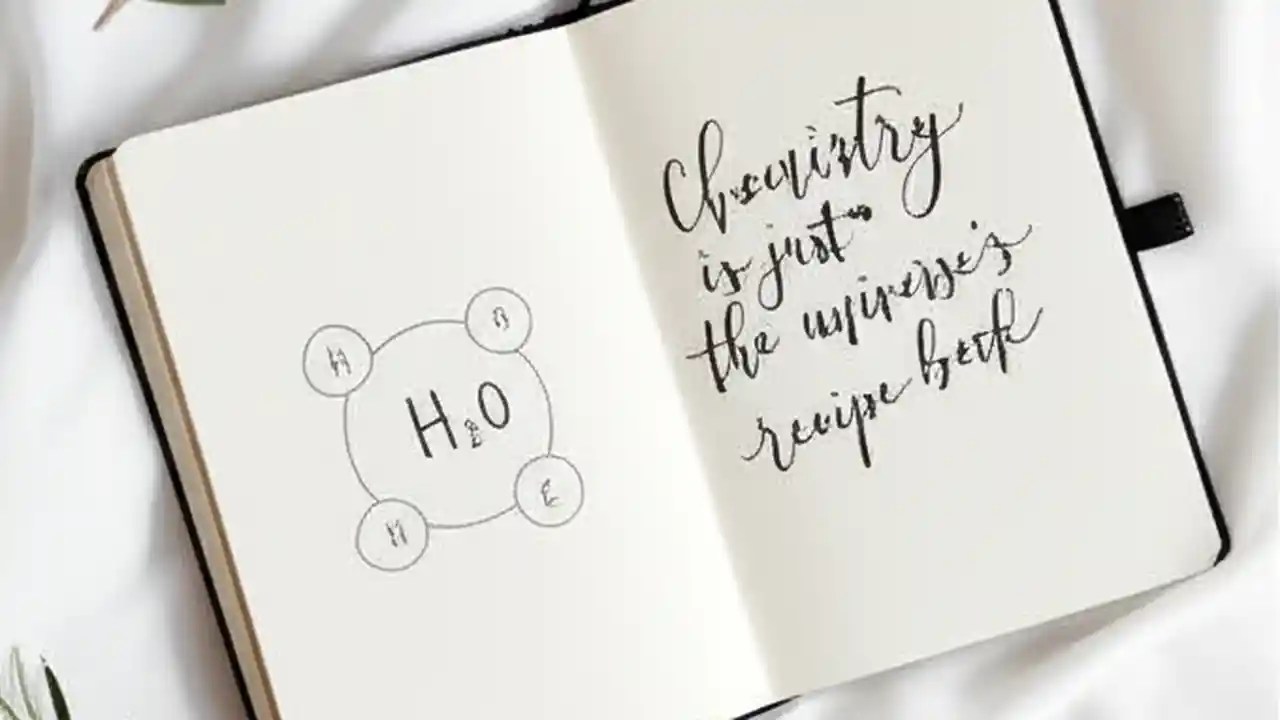 H₂O
Chemistry
is just
the universe's
recipe